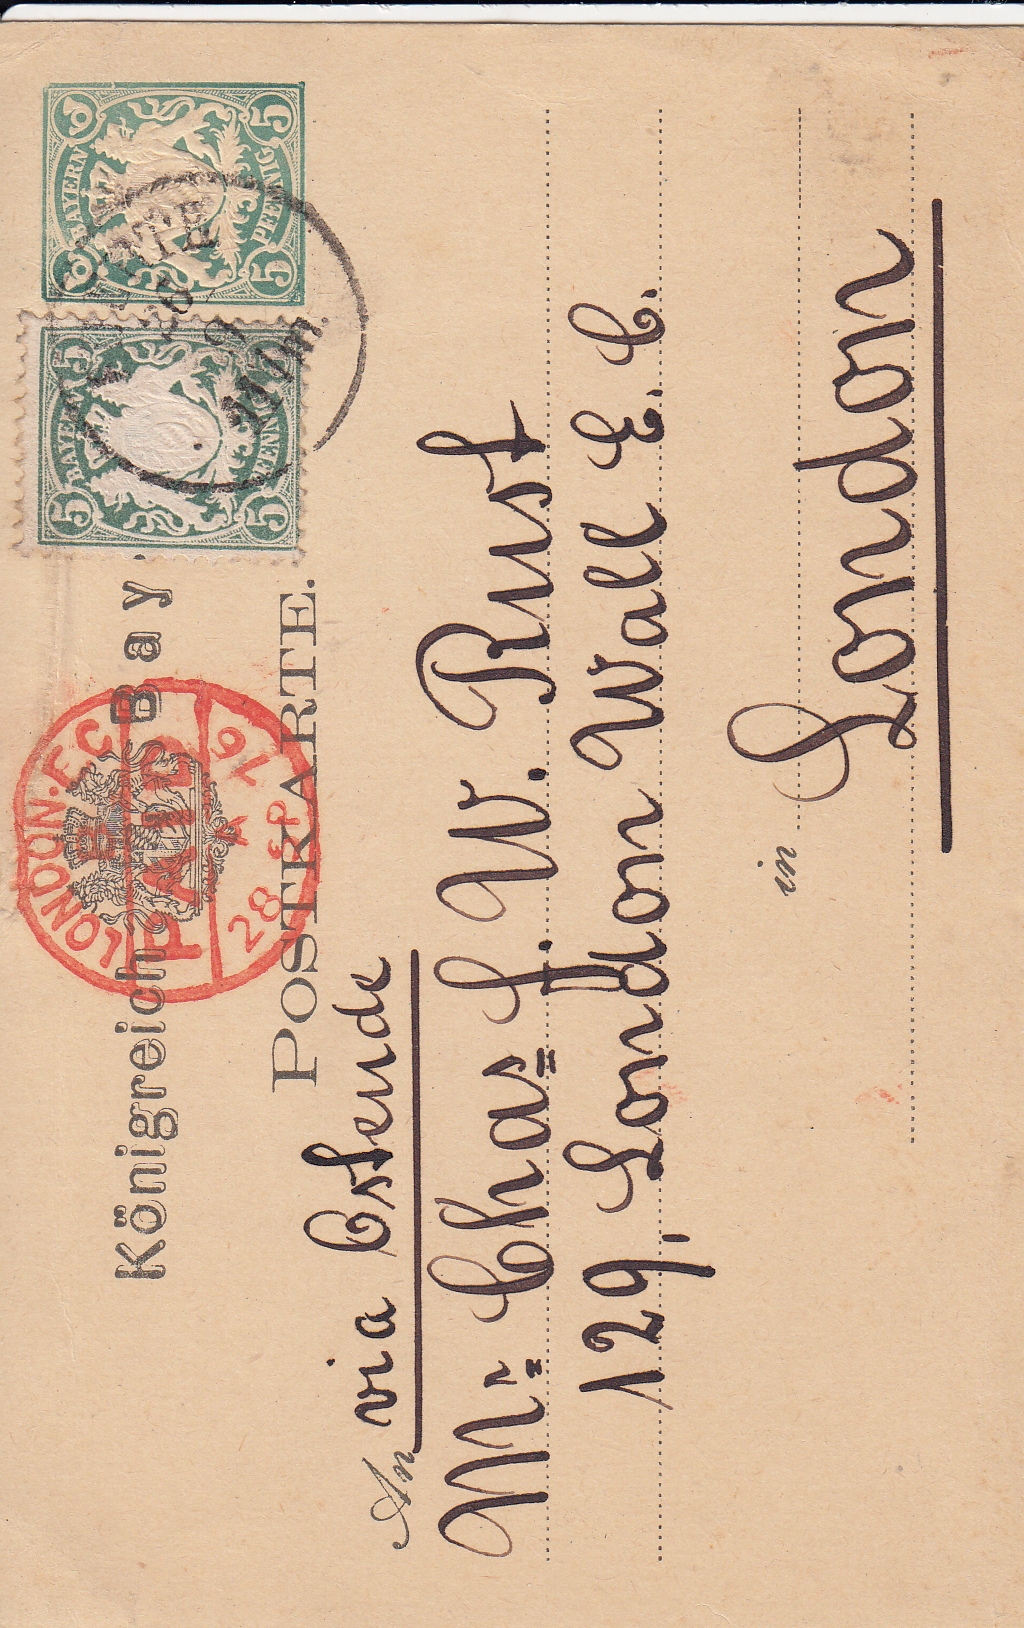 Königreich Bay
POSTKARTE.
BAYERN
5 PFENNIG 5
BAYER
5 PFENNIG 5
LONDON. E C
PAID
28
97
An
via Ostende
Mr. Chas J. W. Rust
129, London Wall E. C.
in London